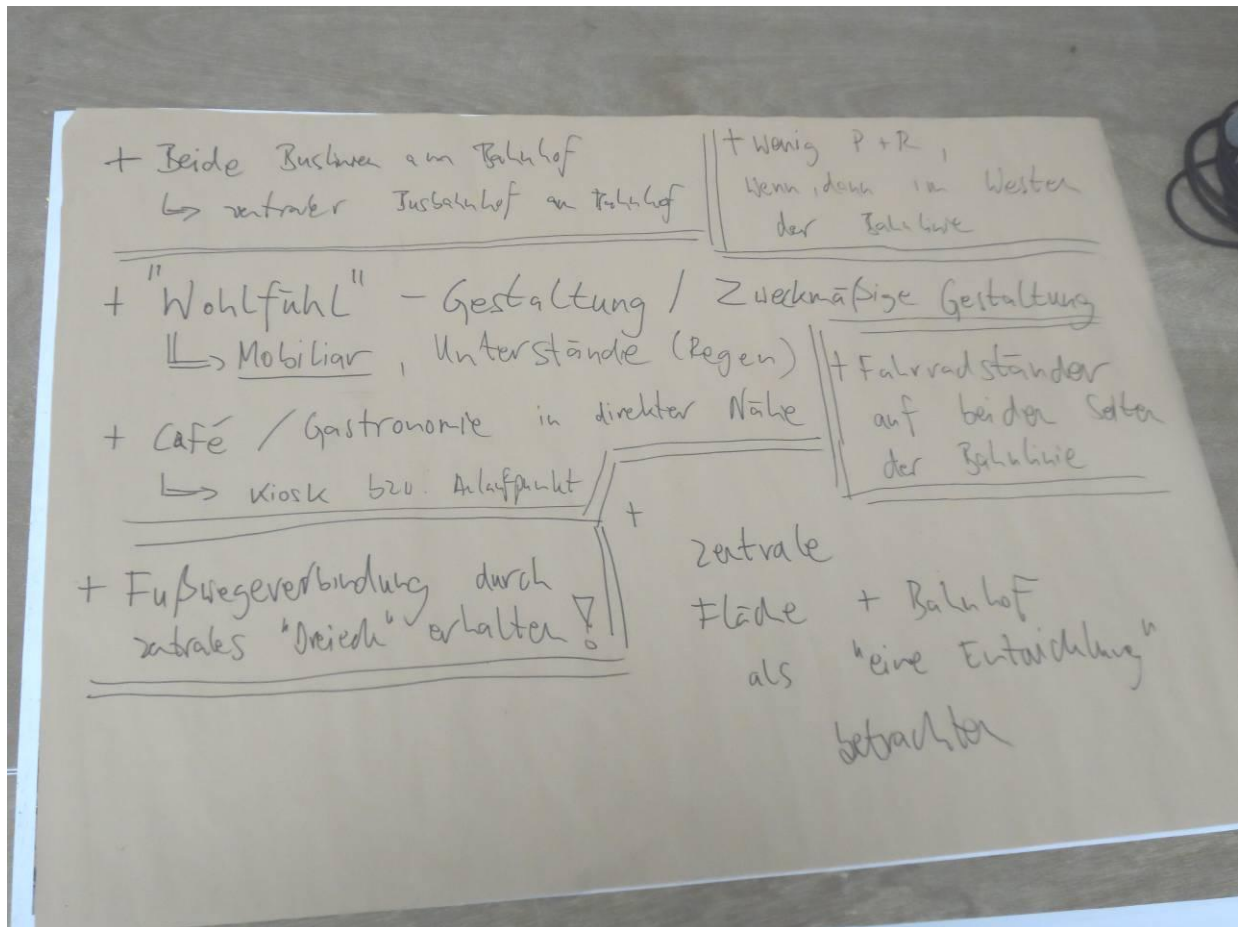 + Beide Buslinien am Bahnhof
↳ zentraler Busbahnhof am Bahnhof
+ Wenig P+R,
wenn, dann im Westen
der Bahnlinie
+ "Wohlfühl" - Gestaltung / Zweckmäßige Gestaltung
↳ Mobiliar, Unterstände (Regen)
+ Café / Gastronomie in direkter Nähe
↳ Kiosk bzw. Anlaufpunkt
+ Fahrradständer
auf beiden Seiten
der Bahnlinie
+ Fußwegeverbindung durch
zentrales "Dreieck" erhalten!
+
zentrale
Fläche + Bahnhof
als "eine Entwicklung"
betrachten